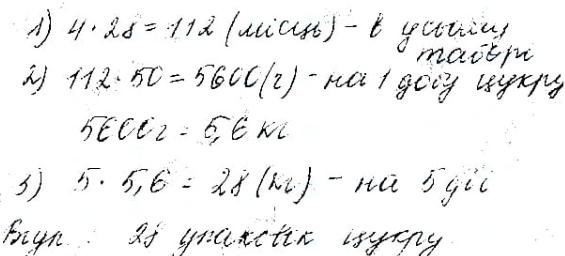 1) 4 · 28 = 112 (місць) - в усьому
таборі
2) 112 · 50 = 5600 (г) - на 1 добу цукру
5600 г = 5,6 кг
3) 5 · 5,6 = 28 (кг) - на 5 діб
28 упаковок цукру